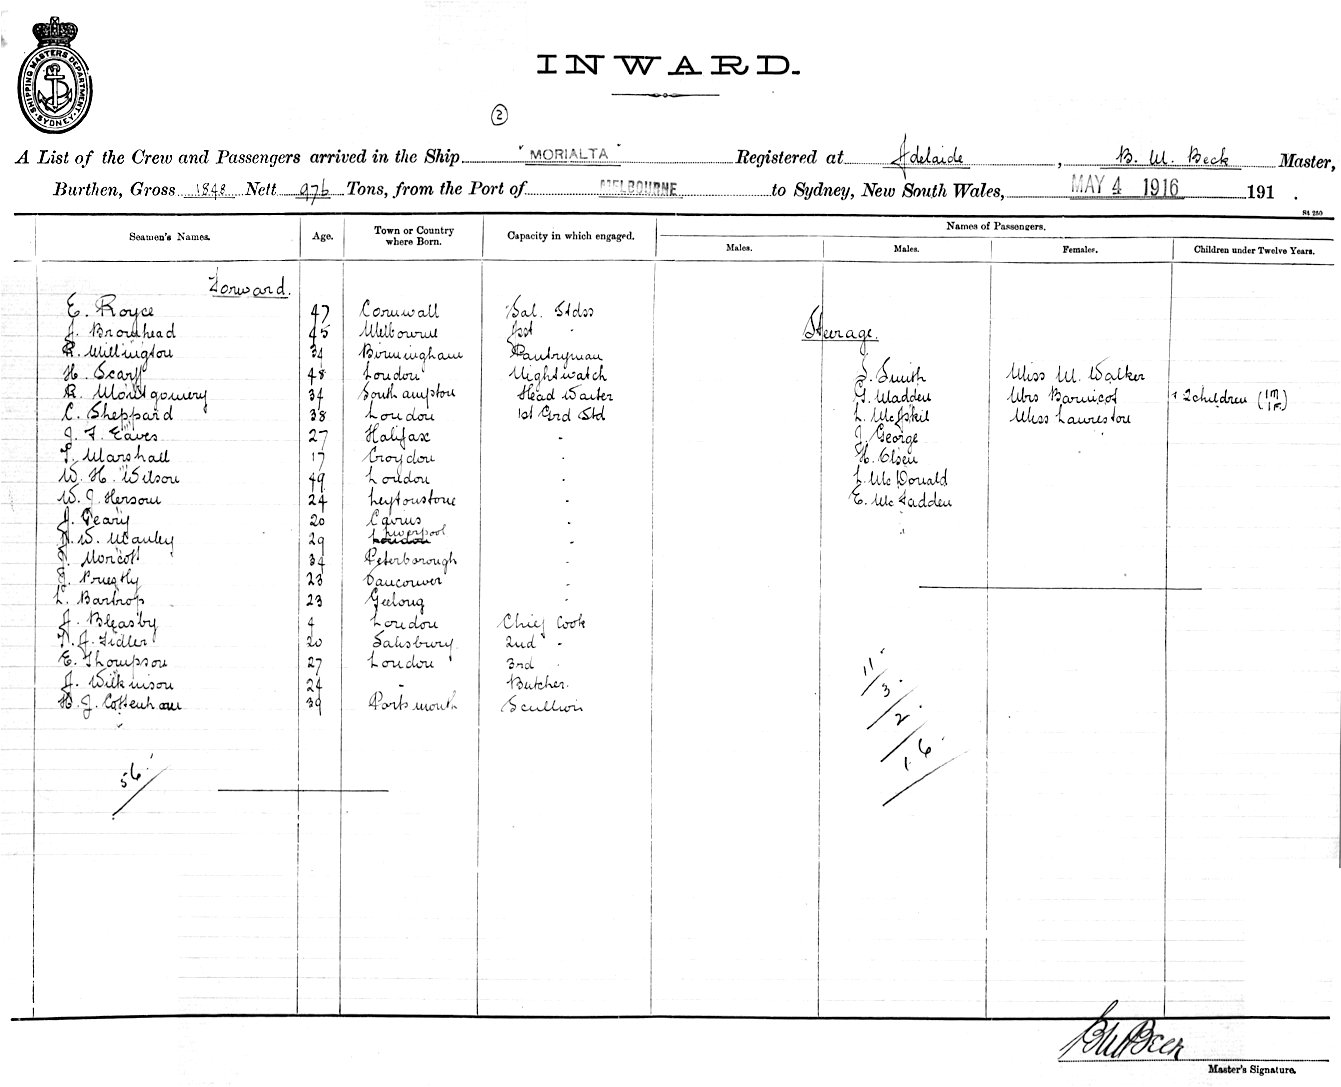 SHIPPING MASTERS DEPARTMENT
SYDNEY
INWARD.
2
A List of the Crew and Passengers arrived in the Ship "MORIALTA" Registered at Adelaide, B. M. Beck Master,
Burthen, Gross 1848 Nett 976 Tons, from the Port of MELBOURNE to Sydney, New South Wales, MAY 4 1916 191 .
S4 250
Seamen's Names. Age. Town or Country where Born. Capacity in which engaged. Names of Passengers.
Males. Males. Females. Children under Twelve Years.
Forward.
E. Royce 47 Cornwall Sal. Stdss
J. Bromhead 45 Melbourne Asst "
R. Millington 34 Birmingham Pantryman
Steerage.
H. Scarf 48 London Nightwatch J. Smith Miss M. Walker
R. Montgomery 34 Southampton Head Waiter G. Madden Mrs Barnicot + 2 children (1M 1F)
C. Sheppard 38 London 1st Grd Std L. McAskil Miss Laureston
J. F. Eaves 27 Halifax " J. George
T. Marshall 17 Croydon " H. Olsen
W. H. Wilson 49 London " L. McDonald
W. J. Hersom 24 Leytonstone " E. McFadden
J. Geary 20 "
W. Manley 29 Liverpool "
Morcott 34 Peterborough "
23 Vancouver "
L. Bartrop 23 Geelong "
J. Bleasby 4 London Chief Cook
J. Fidler 20 Salisbury 2nd "
E. Thompson 27 London 3rd "
J. Wilkinson 24 " Butcher
H. J. Cottenham 39 Portsmouth Scullion
11
3
2
16
56
B M Beck
Master's Signature.